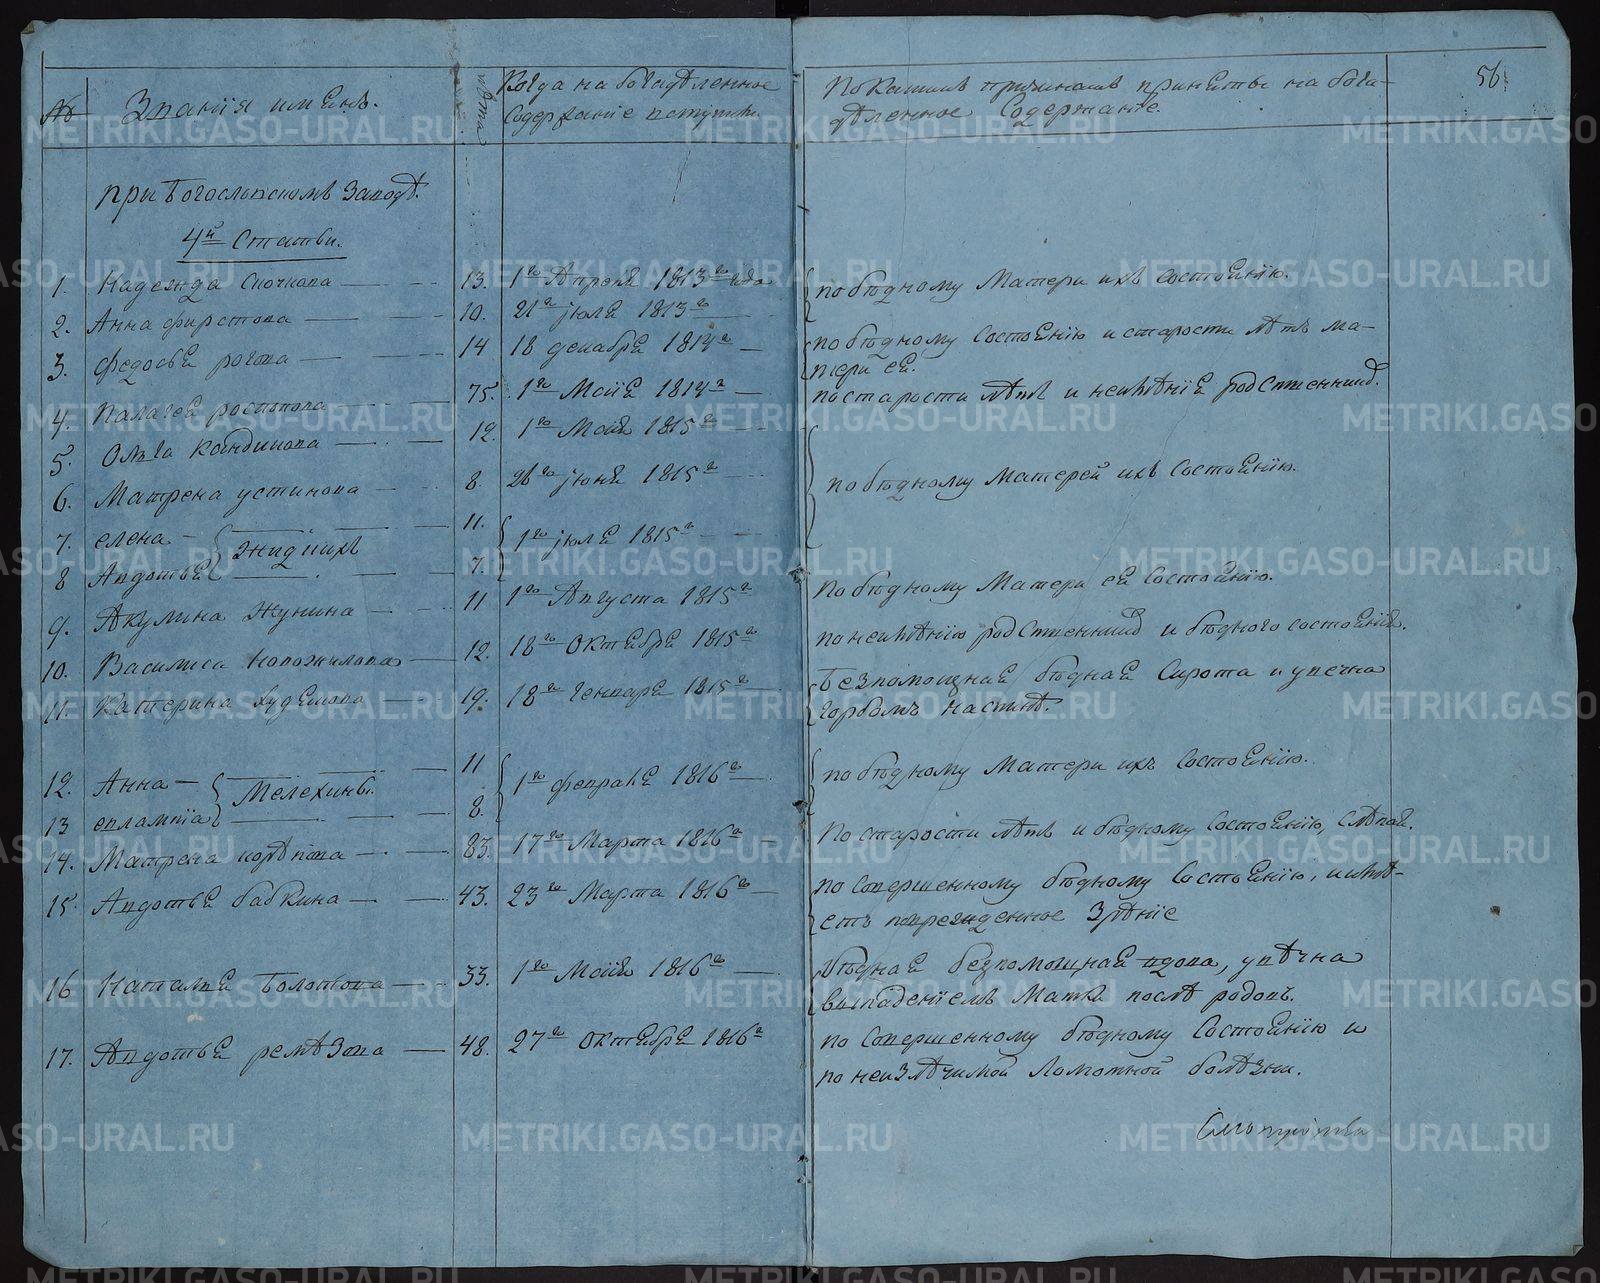 № Званія именъ. лѣта Когда на богадѣленное Содержаніе поступили По какимъ причинамъ приняты на бога- 56.
дѣленное Содержаніе.
при Богословскомъ Заводѣ.
4й Статьи.
1. Надежда 13. 1го Апрѣля 1813го года по бѣдному Матери ихъ состоянію.
2. Анна Фирстова 10. 21го июля 1813го
3. Федосья рогова 14 18 декабря 1814г по бѣдному состоянію и старости лѣтъ ма-
тери ея.
4. Палагея роспопова 75. 1го Маія 1814г по старости лѣтъ и неимѣніе родственниц.
5. Ольга Кандикова 12. 1го Маія 1815го
6. Матрена устинова 8. 26го июня 1815г по бѣдному Матерей ихъ Состоянію.
7. елена Жидкихъ 11. 1го июля 1815г
8 Авдотья 7.
9. Акулина Жунина 11 1го Августа 1815г по бѣдному Матери ея Состоянію.
10. Василиса Новожилова 12. 18го Октября 1815го по неимѣнію родственниц и бѣдного состоянія.
11. Катерина Худякова 19. 18го Генваря 1815го безпомощная бѣдная Сирота и увечна
горбомъ на спинѣ.
12. Анна Мелехины. 11 1го февраля 1816го по бѣдному Матери ихъ Состоянію.
13 евлампія 8.
14. Матрена 83. 17го Марта 1816го По старости лѣтъ и бѣдному Состоянію, слѣпая.
15. Авдотья бабкина 43. 23го Марта 1816го по совершенному бѣдному Состоянію, имѣ-
етъ поврежденное Зрѣніе
16 Наталья Болотова 33. 1го Маія 1816го бѣдная безпомощная вдова, увѣчна
выпаденіемъ Матки послѣ родовъ.
17. Авдотья ремѣзова 48. 27го Октября 1816го по совершенному бѣдному Состоянію и
по неизлѣчимой ломотной болѣзни.
METRIKI.GASO-URAL.RU